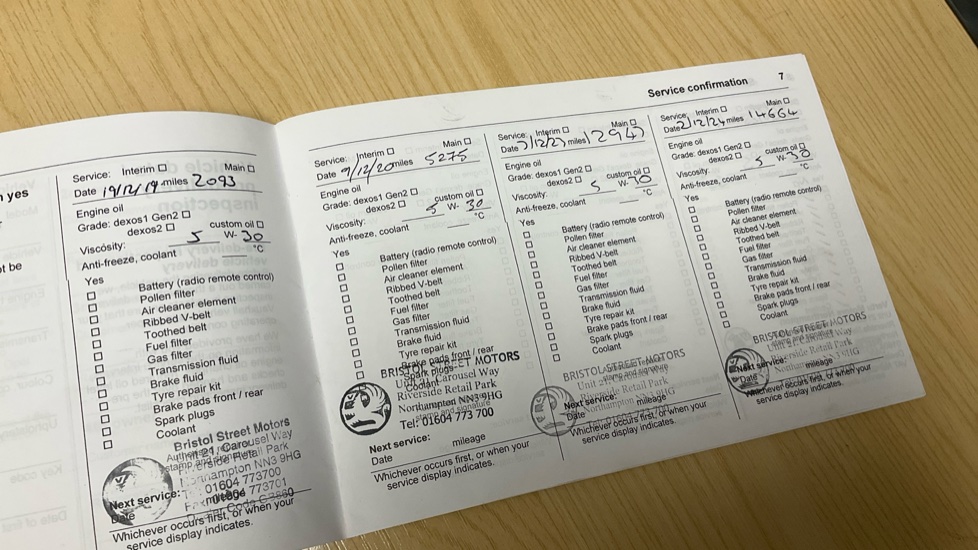 Service confirmation 7
yes
be
Service: Interim Main
Date 19/12/19 miles 2093
Engine oil
Grade: dexos1 Gen2
dexos2 custom oil
Viscosity: 5 W- 30
Anti-freeze, coolant °C
Yes
Battery (radio remote control)
Pollen filter
Air cleaner element
Ribbed V-belt
Toothed belt
Fuel filter
Gas filter
Transmission fluid
Brake fluid
Tyre repair kit
Brake pads front / rear
Spark plugs
Coolant
Bristol Street Motors
21, Carousel Way
Riverside Retail Park
Northampton NN3 9HG
01604 773700
01604 773701
Next service:
Date
Whichever occurs first, or when your
service display indicates.
Service: Interim Main
Date 9/12/20 miles 5275
Engine oil
Grade: dexos1 Gen2
dexos2 custom oil
Viscosity: 5 W- 30
Anti-freeze, coolant °C
Yes
Battery (radio remote control)
Pollen filter
Air cleaner element
Ribbed V-belt
Toothed belt
Fuel filter
Gas filter
Transmission fluid
Brake fluid
Tyre repair kit
Brake pads front / rear
Spark plugs
Coolant
BRISTOL STREET MOTORS
Carousel Way
Riverside Retail Park
Northampton NN3 9HG
stamp and signature
Tel: 01604 773 700
Next service:
Date mileage
Whichever occurs first, or when your
service display indicates.
Service: Interim Main
Date miles
Engine oil
Grade: dexos1 Gen2
dexos2 custom oil
Viscosity: 5 W- 30
Anti-freeze, coolant °C
Yes
Battery (radio remote control)
Pollen filter
Air cleaner element
Ribbed V-belt
Toothed belt
Fuel filter
Gas filter
Transmission fluid
Brake fluid
Tyre repair kit
Brake pads front / rear
Spark plugs
Coolant
BRISTOL STREET MOTORS
Carousel Way
Riverside Retail Park
Northampton NN3 9HG
Next service:
Date mileage
Whichever occurs first, or when your
service display indicates.
Service: Interim Main
Date 2/12/24 miles 14664
Engine oil
Grade: dexos1 Gen2
dexos2 custom oil
Viscosity: 5 W- 30
Anti-freeze, coolant °C
Yes
Battery (radio remote control)
Pollen filter
Air cleaner element
Ribbed V-belt
Toothed belt
Fuel filter
Gas filter
Transmission fluid
Brake fluid
Tyre repair kit
Brake pads front / rear
Spark plugs
Coolant
BRISTOL STREET MOTORS
Carousel Way
Riverside Retail Park
Next service:
Date mileage
Whichever occurs first, or when your
service display indicates.